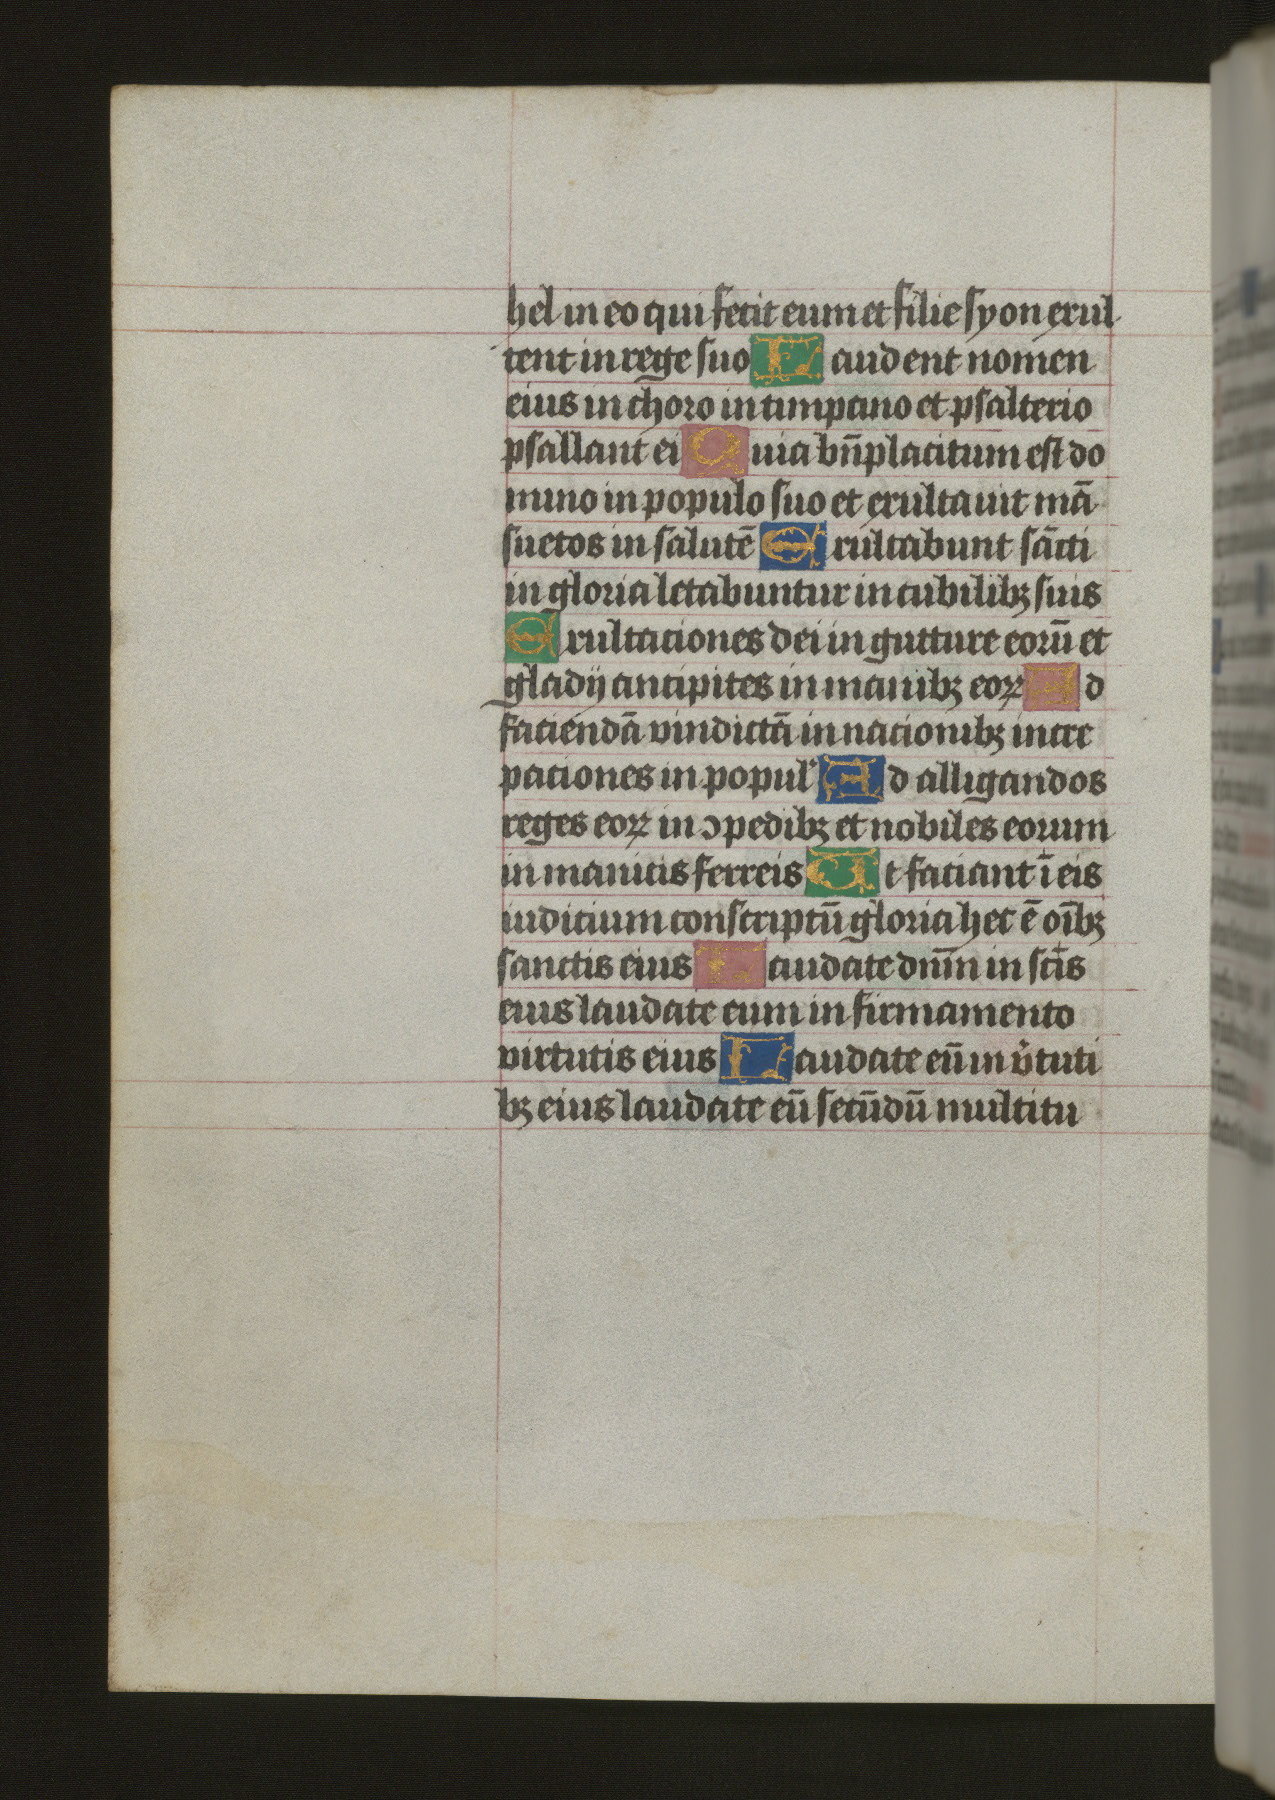 hel in eo qui fecit eum et filie syon exul
tent in rege suo Laudent nomen
eius in choro in timpano et psalterio
psallant ei Quia bn̄placitum est do
mino in populo suo et exultauit mā
suetos in salutē Exultabunt sācti
in gloria letabuntur in cubilibꝫ suis
Exultaciones dei in gutture eorū et
gladij ancipites in manibꝫ eoꝝ Ad
faciendā vindictā in nacionibꝫ incre
paciones in popul' Ad alligandos
reges eoꝝ in ꝯpedibꝫ et nobiles eorum
in manicis ferreis Ut faciant ī eis
iudicium conscriptū gloria hec ē oībꝫ
sanctis eius Laudate dnm̄ in scīs
eius laudate eum in firmamento
virtutis eius Laudate eū in v̾tuti
bꝫ eius laudate eū secūdū multitu